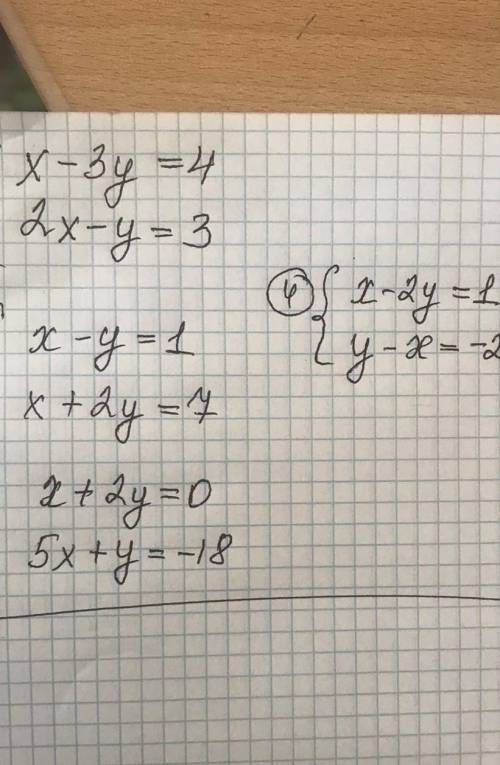 x - 3y = 4
2x - y = 3
x - y = 1
x + 2y = 7
x + 2y = 0
5x + y = -18
④ { x - 2y = 1
y - x = -2